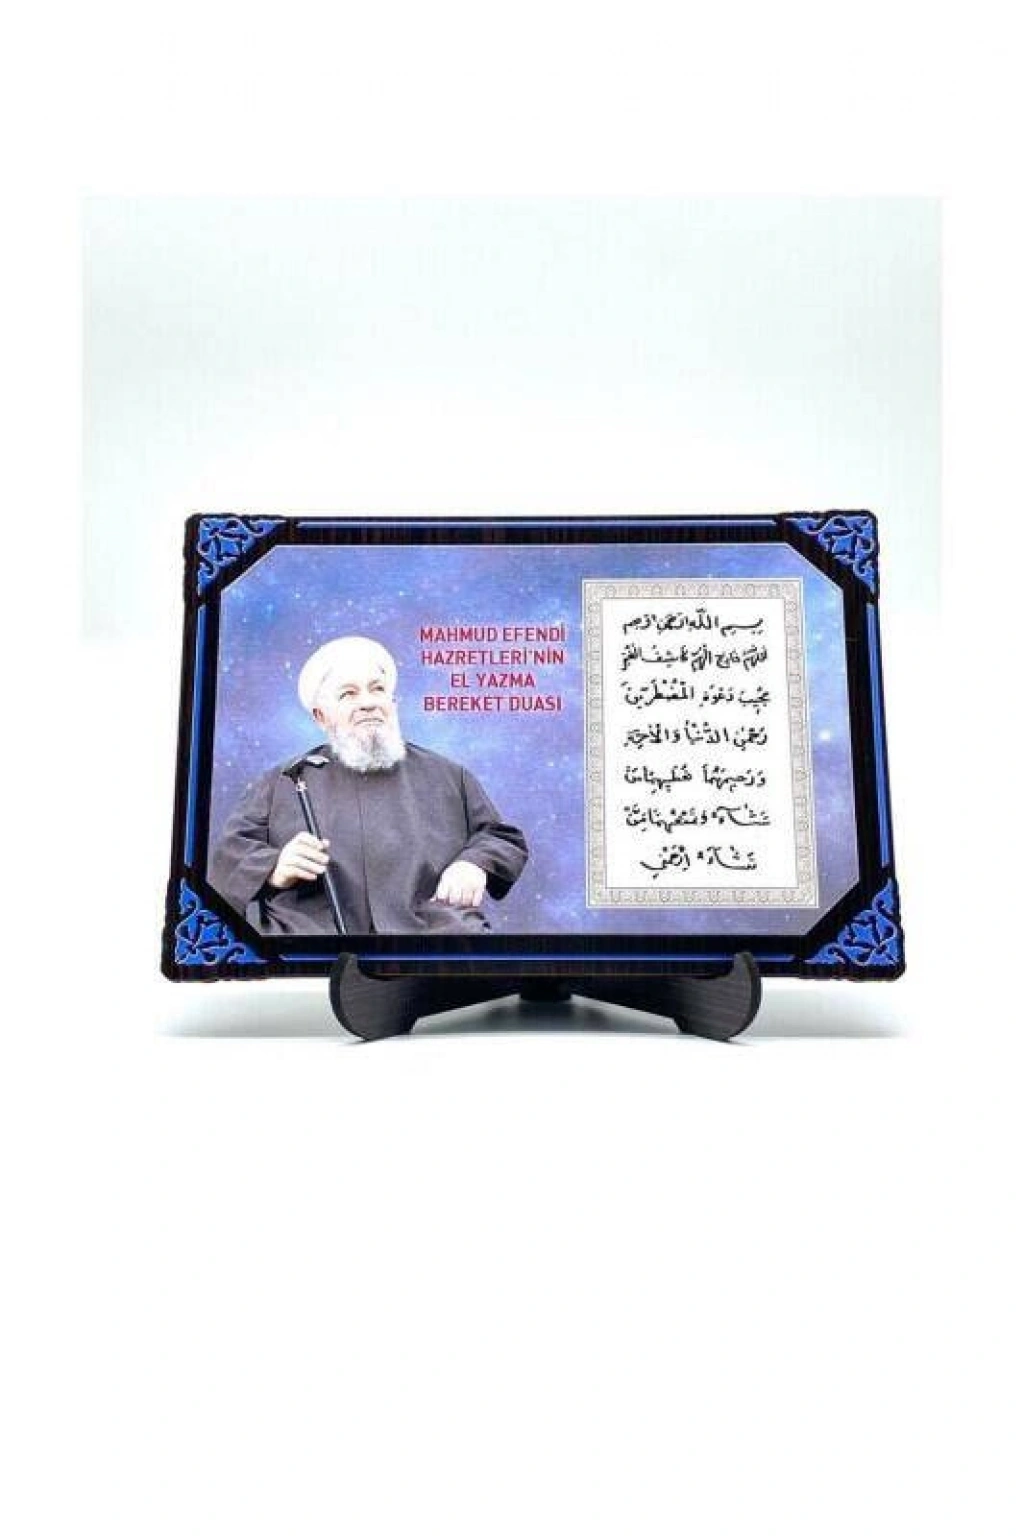 MAHMUD EFENDİ
HAZRETLERİ'NİN
EL YAZMA
BEREKET DUASI
بسم الله الرحمن الرحيم
اللهم فارج الهم كاشف الغم
مجيب دعوة المضطرين
رحمن الدنيا والآخرة
ورحيمهما
تشاء وتمنعهما من
تشاء ارحمني